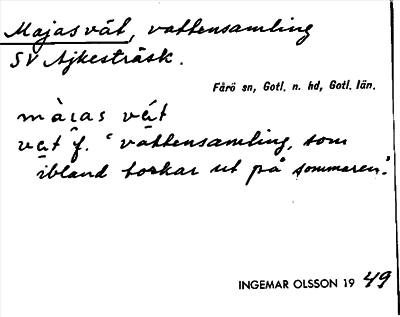 Majasvät, vattensamling
SV Ajkesträsk.
Fårö sn, Gotl. n. hd, Gotl. län.
màɩas vát
vat f. "vattensamling, som
ibland torkar ut på sommaren."
INGEMAR OLSSON 19 49